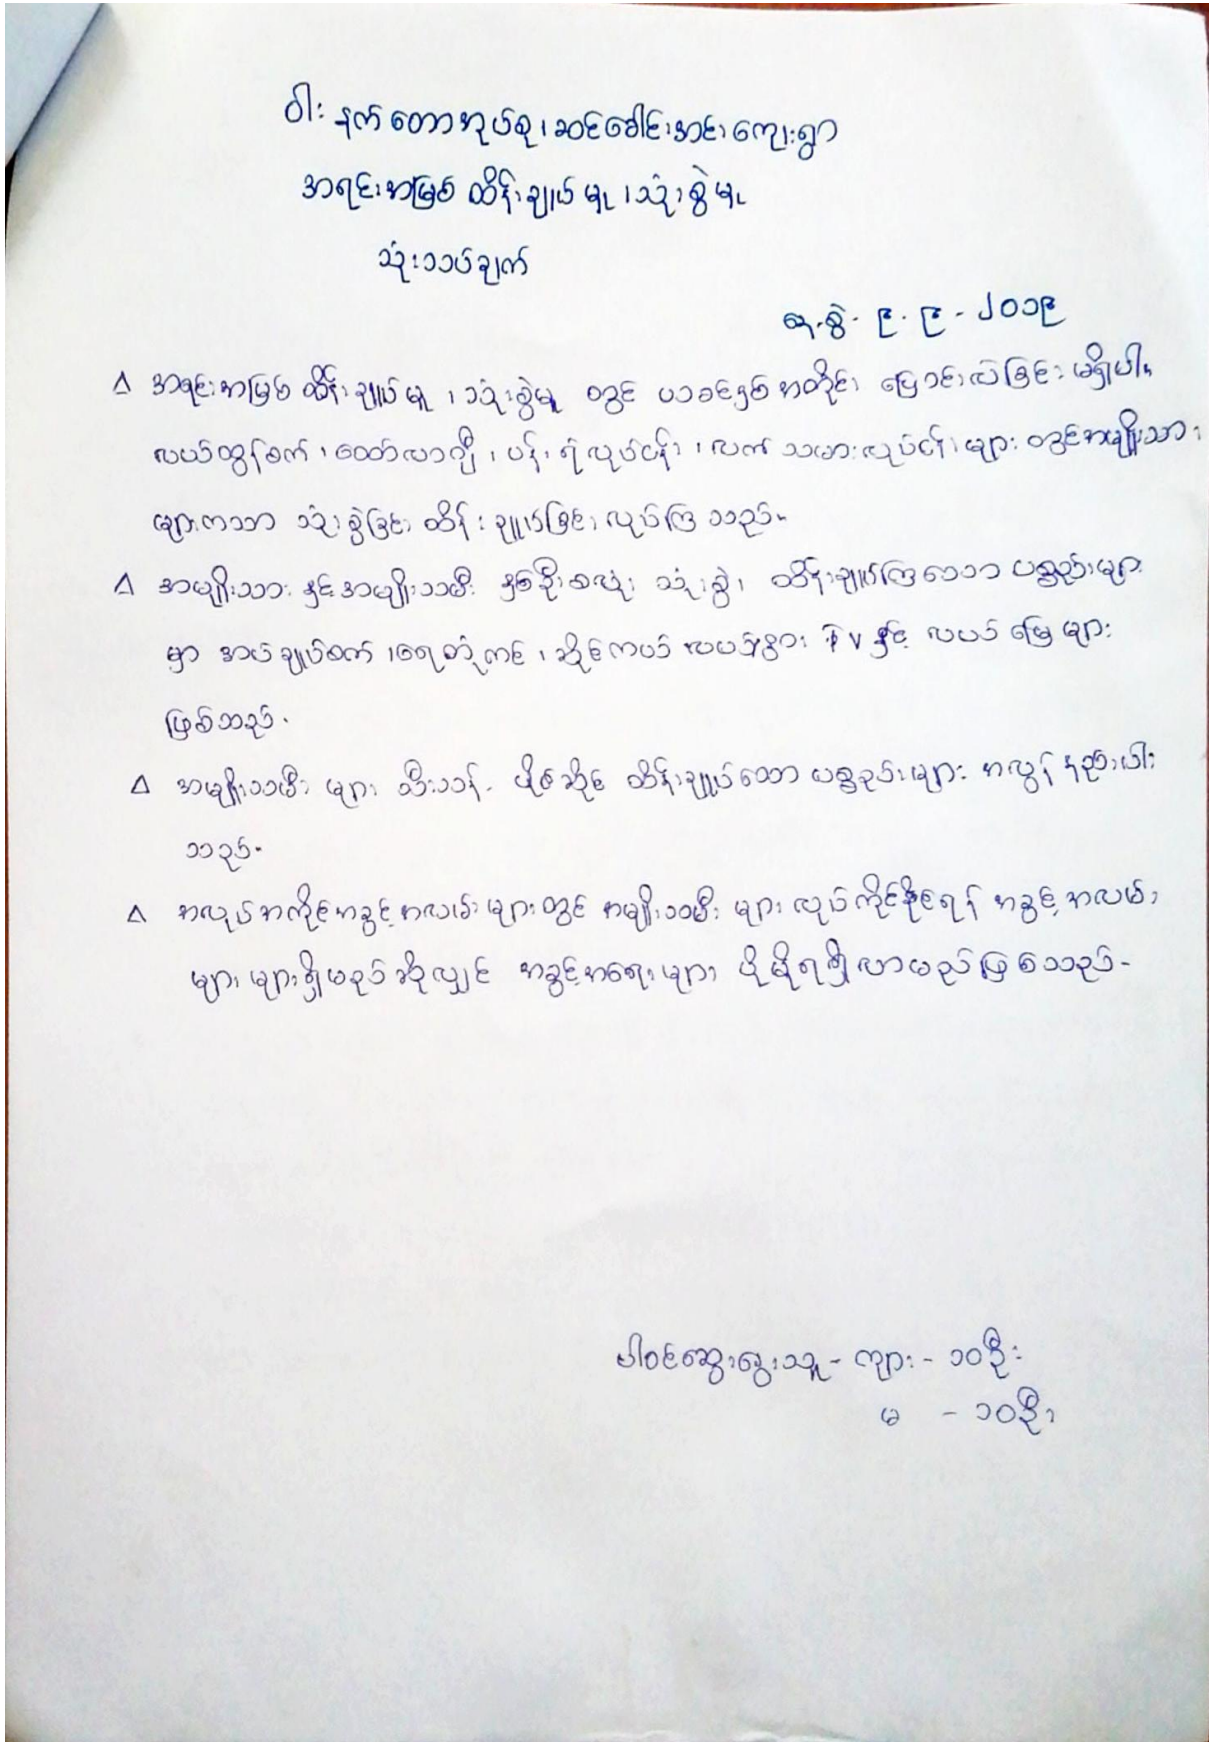 ဝါးနက်တောအုပ်စု၊ ဆင်ခေါင်းအင်းကျေးရွာ
အရင်းအမြစ် ထိန်းချုပ်မှု ၊ သုံးစွဲမှု
သုံးသပ်ချက်
ရက်စွဲ - ၉ . ၉ - ၂၀၁၉
∆ အရင်းအမြစ် ထိန်းချုပ်မှု ၊ သုံးစွဲမှု တွင် ယခင်နှစ်အတိုင်း ပြောင်းလဲခြင်း မရှိပါ။
လယ်ထွန်စက် ၊ ထော်လာဂျီ ၊ ပန်းရံလုပ်ငန်း ၊ လက်သမားလုပ်ငန်းများ တွင်အမျိုးသား
များကသာ သုံးစွဲခြင်း ထိန်းချူပ်ခြင်း လုပ်ကြသည်။
∆ အမျိုးသား နှင့် အမျိုးသမီး နှစ်ဦးစလုံး သုံးစွဲ ၊ ထိန်းချုပ်ကြသော ပစ္စည်းများ
မှာ အပ်ချုပ်စက် ၊ ရေတွံကင် ၊ ဆိုင်ကယ် ၊ TV နှင့် လယ်မြေများ
ဖြစ်သည်။
∆ အမျိုးသမီး များ သီးသန့် ပိုင်ဆိုင် ထိန်းချုပ်သော ပစ္စည်းများ အလွန် နည်းပါး
သည်။
∆ အလုပ်အကိုင်အခွင့်အလမ်းများတွင် အမျိုးသမီး များ လုပ်ကိုင်နိုင်ရန် အခွင့်အလမ်း
များ များရှိမည်ဆိုလျှင် အခွင့်အရေးများ ပိုမိုရရှိလာမည်ဖြစ်သည်။
ပါဝင်ဆွေးနွေးသူ - ကျား - ၁၀ဦး
မ - ၁၀ဦး